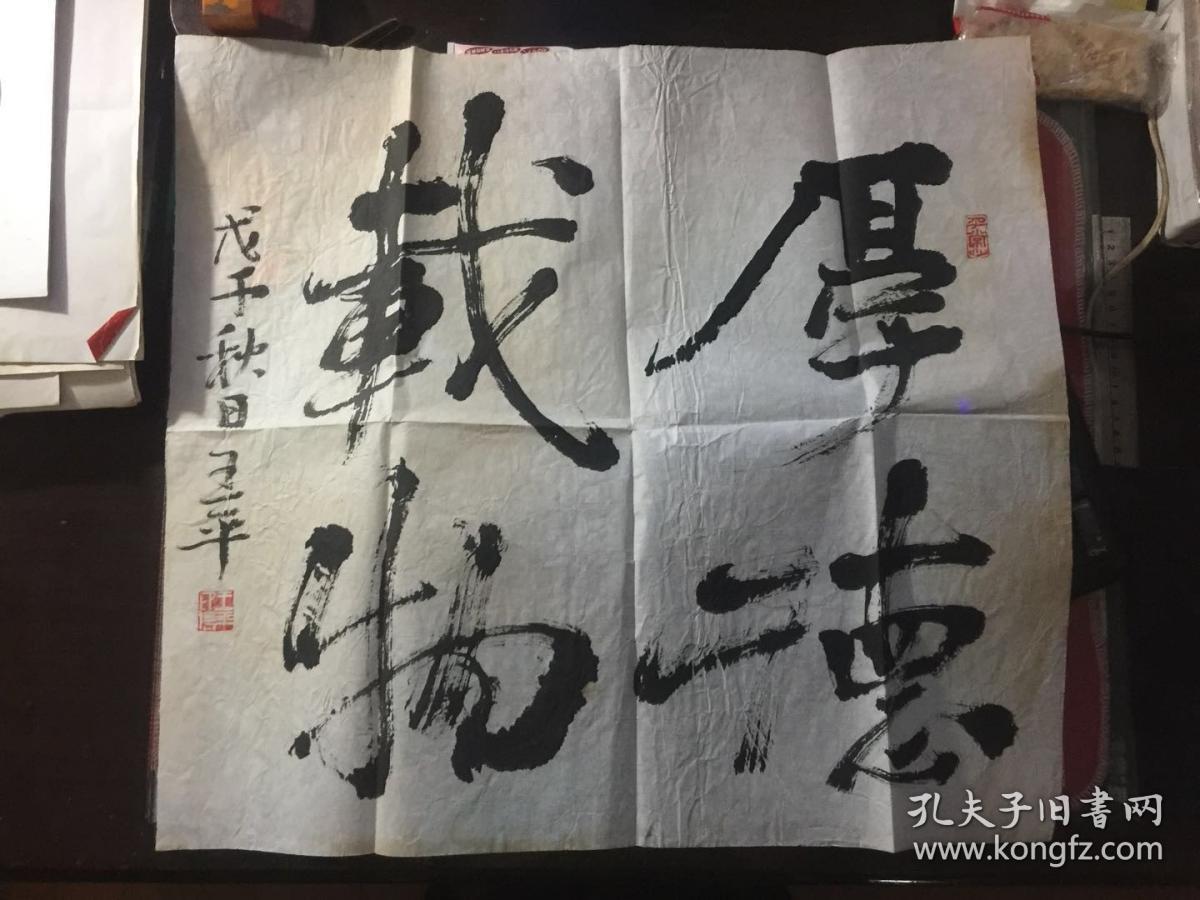 厚德
載物
戊子秋日王平
孔夫子旧書网
www.kongfz.com